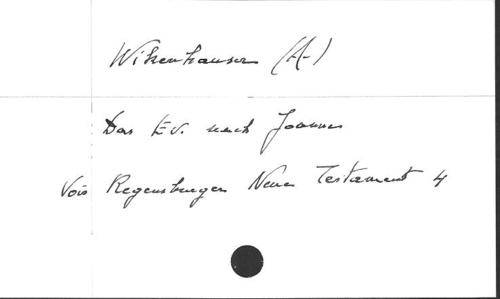 Wikenhauser (A.)
Das Ev. nach Joannes
Voir Regensburger Neues Testament 4